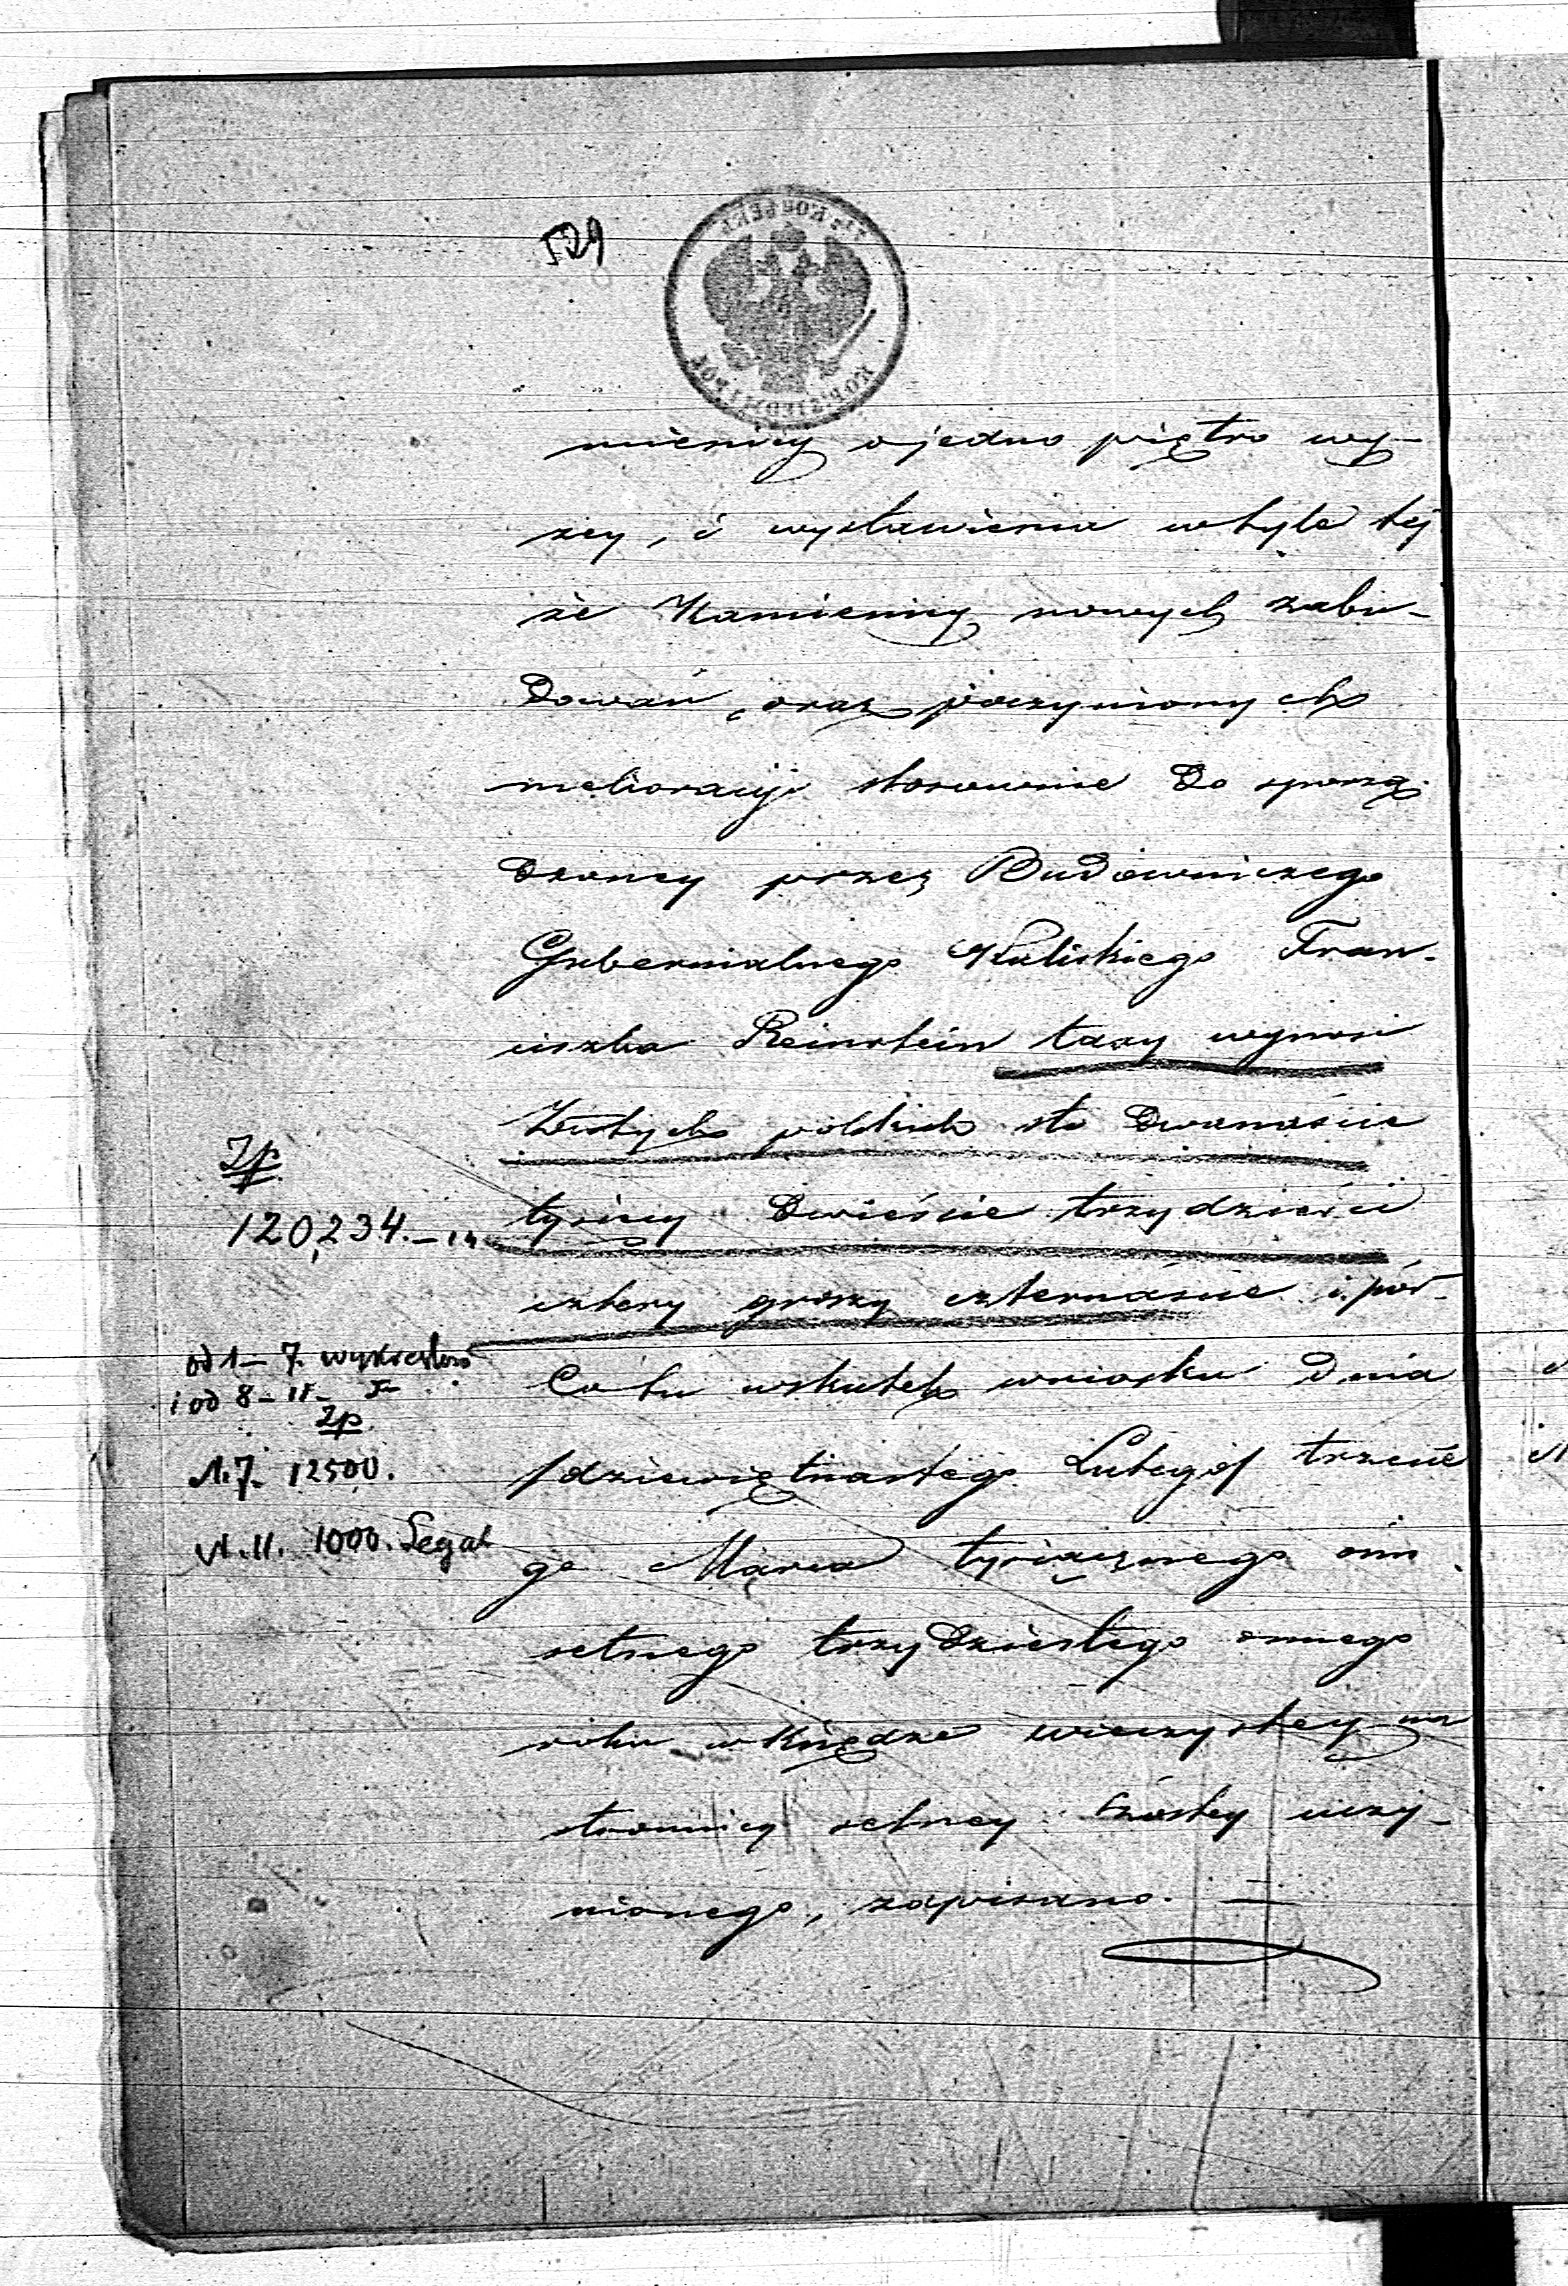 529
mienicy o jedno piętro wy-
zey, i wystawienia w tyle tej
że Kamienicy nowych zabu-
dowań, oraz poczynionych
melioracyi stosownie do sporzą-
dzoney przez Budowniczego
Gubernialnego Kaliskiego Fran-
ciszka Reinstein taxy wynosi
Złotych polskich sto dwanaście
tysięcy dwieście trzydzieści
cztery groszy czternaście i pół.
Zp
120,234.-14
Co tu wskutek wniosku dnia
/dziewiętnastego Lutego/ trzecie
go Marca tysiącznego ośm
setnego trzydziestego ósmego
roku w Księdze wieczystey na
stronnicy setney szóstey uczy-
nionego, zapisano.
od 1 - 7. wykreślono
i od 8 - 11 -
Zp.
N. 7. 12500.
N. 11. 1000. Legat